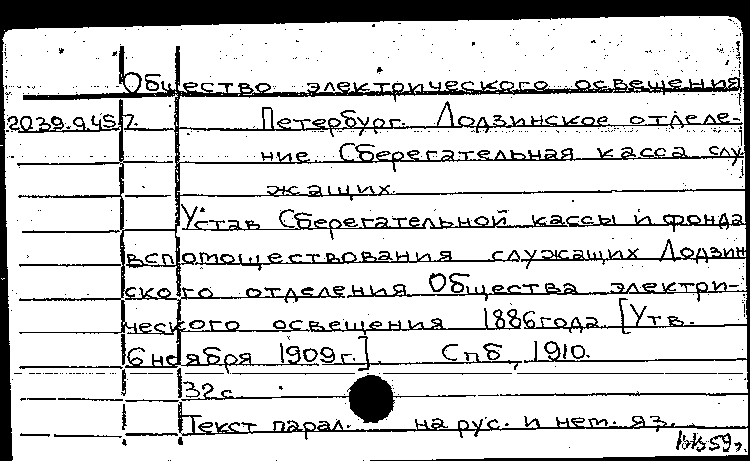 Общество электрического освещения
2039.9.45 7. Петербург. Лодзинское отделе-
ние. Сберегательная касса слу
жащих.
Устав Сберегательной кассы и фонда
вспомоществования служащих Лодзин
ского отделения Общества электри-
ческого освещения 1886 года [Утв.
6 ноября 1909 г.]. Спб, 1910.
32 с.
Текст парал. на рус. и нем. яз.